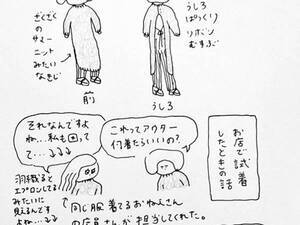 ざくざく
の
サマー
ニット
みたい
なきじ
前
うしろ
ぱっくり
リボン
むすぶ
うしろ
お店で試着
したときの話
これってアウター
何着たらいいの?
それなんですよ
ね…私も困って
て…
羽織ると
エプロンしてる
みたいに
見えるんです
よね…
↑同じ服着てるおねえさん
の店員さんが担当してくれた。